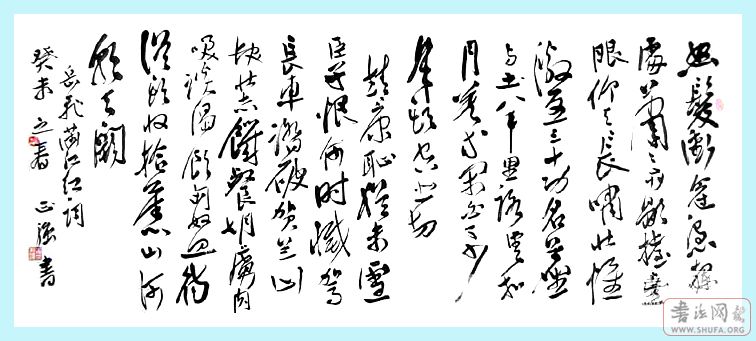 怒髮衝冠憑欄
處蕭々雨歇擡望
眼仰天長嘯壯懷
激烈三十功名塵
与土八千里路雲和
月莫等闲白了少
年頭空悲切
靖康恥猶未雪
臣子恨何時滅駕
長車踏破賀兰山
缺壯志饑餐胡虜肉
笑談渴飲匈奴血待
從頭收拾舊山河
朝天闕
岳飛滿江紅詞
癸未之春 正强書
书法网
WWW.SHUFA.ORG